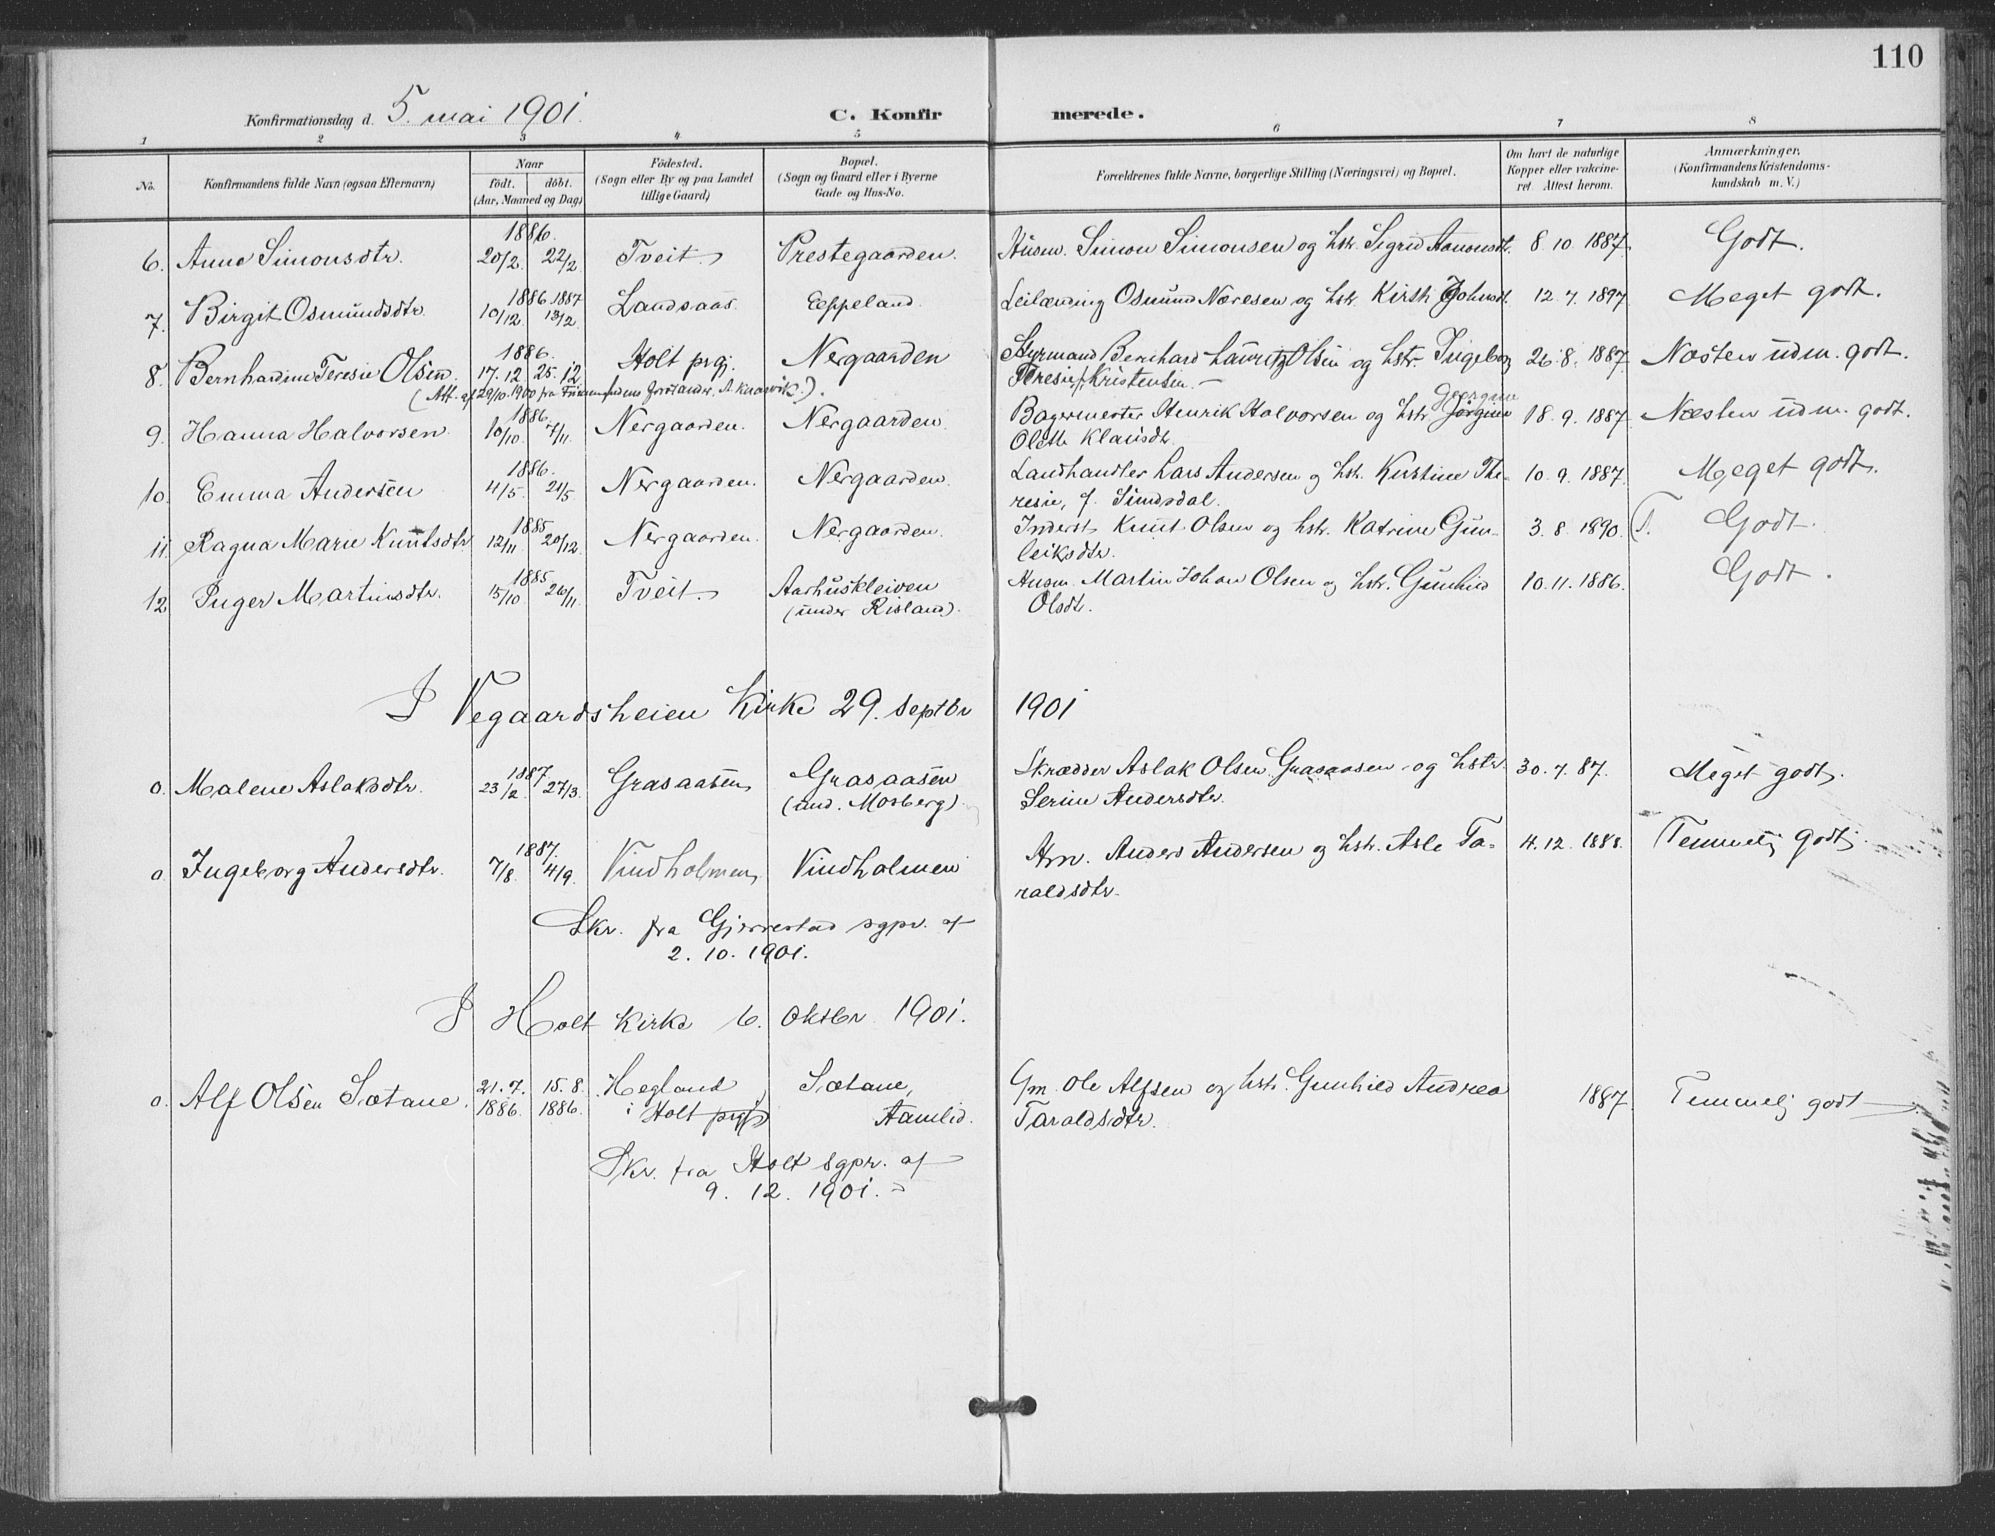 110
Konfirmationsdag d. 5. mai 1901.
C. Konfirmerede.
1 2 3 4 5 6 7 8
No.
Konfirmandens fulde Navn (ogsaa Efternavn)
Naar
födt. döbt.
(Aar, Maaned og Dag)
Födested.
(Sogn eller By og paa Landet
tillige Gaard)
Bopæl.
(Sogn og Gaard eller i Byerne
Gade og Hus-No.
Forældrenes fulde Navne, borgerlige Stilling (Næringsvei) og Bopæl.
Om havt de naturlige
Kopper eller vakcine-
ret Attest herom.
Anmærkninger,
(Konfirmandens Kristendoms-
kundskab m. V.)
1886.
6. Anne Simonsdtr. 20/2. 22/2 Tveit. Prestegaarden. Husm. Simon Simonsen og hstr. Sigrid Aanonsdt. 8. 10. 1887. Godt.
1886 1887
7. Birgit Osmundsdtr. 10/12 13/2 Landsaas. Eppeland. Leilænding Osmund Næresen og hstr. Kirsti Johnsd. 12. 7. 1897 Meget godt.
1886.
8. Bernhardine Teresie Olsen. 17.12 25.12. Holt prgj. Nergaarden Styrmand Bernhard Lauritz Olsen og hstr. Ingeborg 26. 8. 1887 Næsten udm. godt.
Teresie Kristensen.
(Att. af 29/10.1900 fra
1886. Georgine
9. Hanna Halvorsen. 10/10. 7/11. Nergaarden. Nergaarden. Bagermester Henrik Halvorsen og hstr. Jørgine 18. 9. 1887 Næsten udm. godt.
Olette Klausdtr.
1886.
10. Emma Andersen 4/5. 21/5 Nergaarden. Nergaarden. Landhandler Lars Andersen og hstr. Kirstine The- 10. 9. 1887. Meget godt.
resie, f. Simesdal.
1885
11. Ragna Marie Knutsdtr 12/11 20/12 Nergaarden. Nergaarden. Inderst Knut Olsen og hstr. Katrine Gun- 3. 8. 1890. Godt.
leiksdtr.
1885
12. Inger Martinsdtr. 15/10 26/11. Tveit. Aarhuskleiven Husm. Martin Johan Olsen og hstr. Gunhild 10. 11. 1886. Godt.
(under Risland). Olsdtr.
I Vegaardsheien Kirke 29. septbr 1901
1887
o. Malene Aslaksdtr. 23/2. 27/3. Grasaasen Grasaasen Skrædder Aslak Olsen Grasaasen og hstr. 30. 7. 87. Meget godt.
(und. Mosberg). Serine Andersdtr.
1887.
o. Ingeborg Andersdtr. 7/8. 4/9. Vindholmen Vindholmen Arn. Anders Andersen og hstr. Asle Ta- 4. 12. 1888. Temmelig godt.
raldsdtr.
Skr. fra Gjerrestad sgpr. af
2. 10. 1901.
I Holt Kirke 6. Oktbr. 1901.
o. Alf Olsen Sætane. 21. 7. 15. 8. Hegland Sætane, Gm. Ole Alfsen og hstr. Gunhild Andrea 1887. Temmelig godt
1886. 1886. i Holt prgj Aamlid. Taraldsdtr.
Skr. fra Holt sgpr. af
9. 12. 1901.